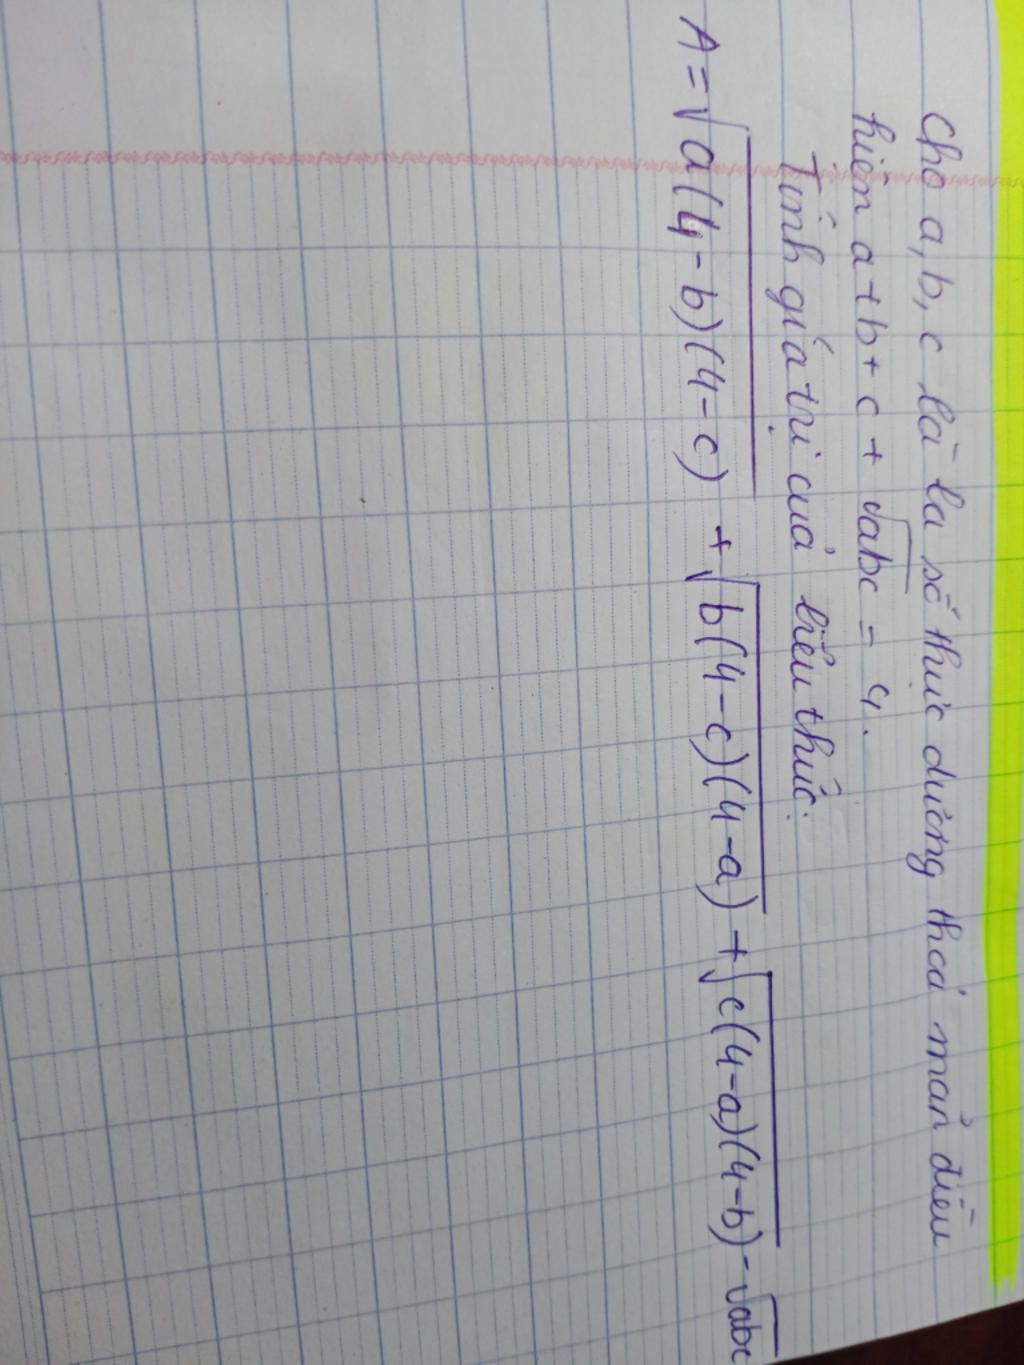 Cho a, b, c là ba số thực dương thoả mãn điều
kiện a + b + c + √abc = 4.
Tính giá trị của biểu thức:
A = √a(4-b)(4-c) + √b(4-c)(4-a) + √c(4-a)(4-b) - √abc